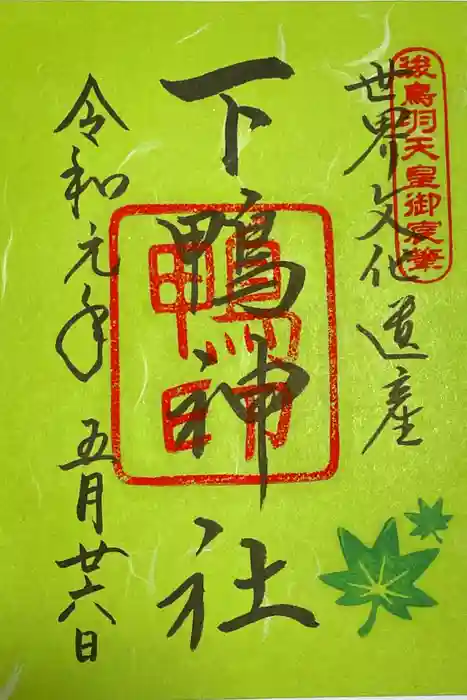 後鳥羽天皇御宸筆
世界文化遺産
下鴨神社
鴨
令和元年 五月廿六日